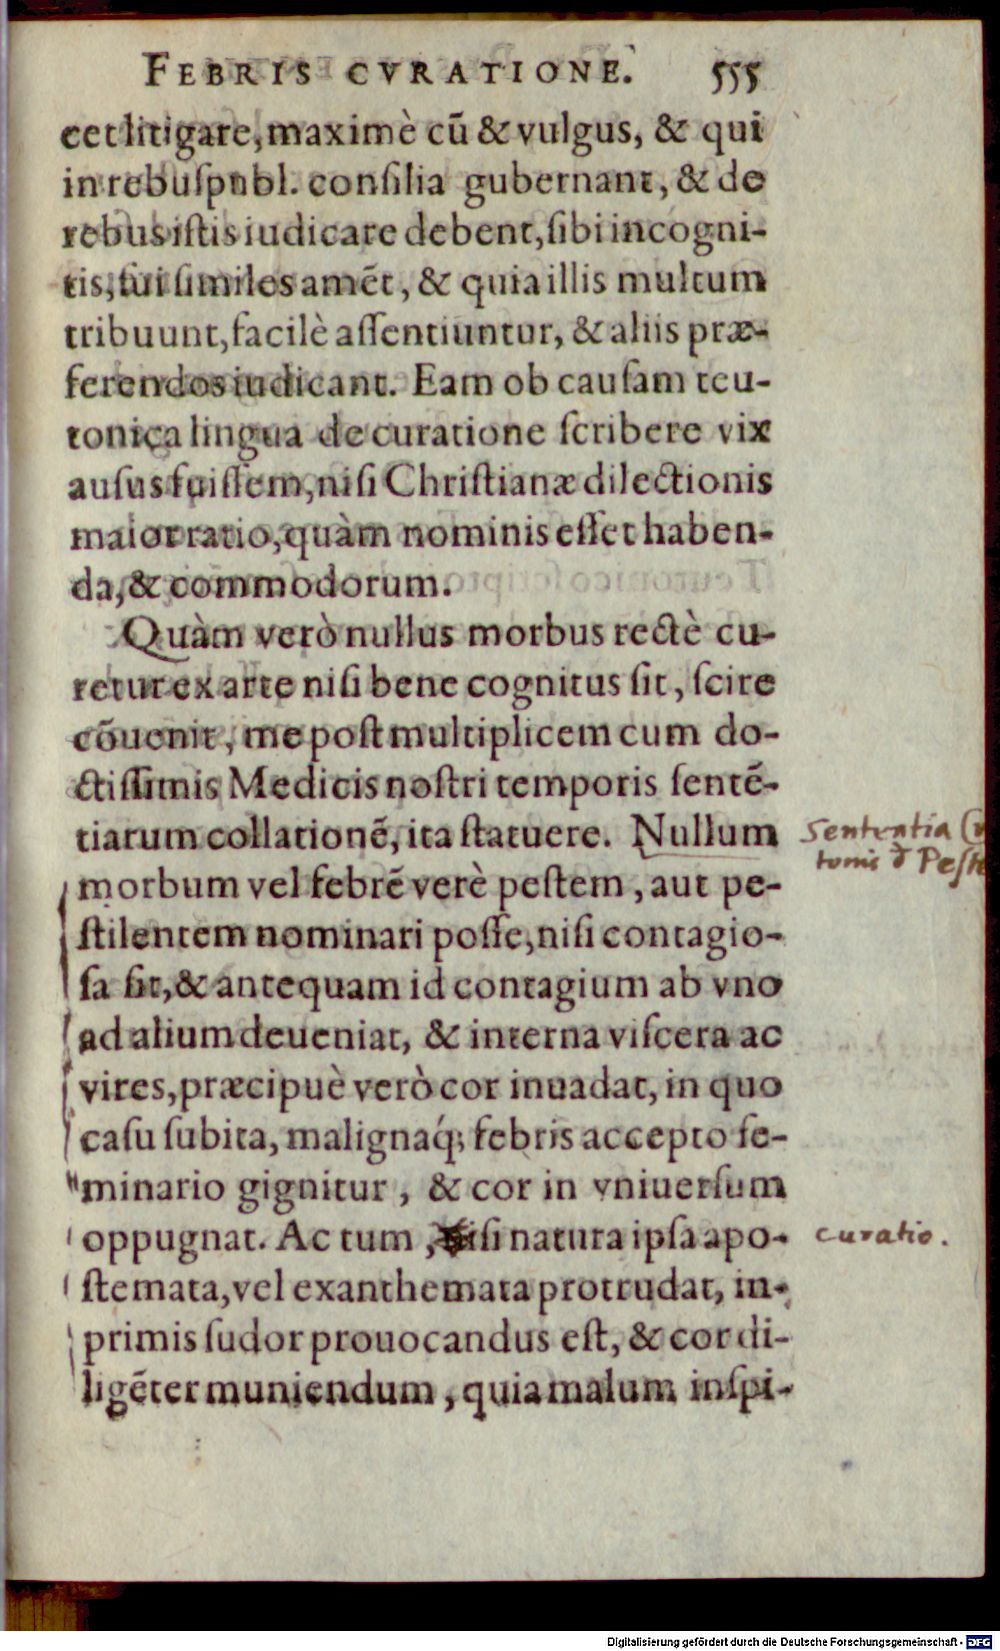 FEBRIS CVRATIONE. 555
cet litigare, maximè cū & vulgus, & qui
in rebuſpubl. conſilia gubernant, & de
rebus iſtis iudicare debent, ſibi incogni-
tis, ſui ſimiles amēt, & quia illis multum
tribuunt, facilè aſſentiuntur, & aliis præ-
ferendos iudicant. Eam ob cauſam teu-
tonica lingua de curatione ſcribere vix
auſus fuiſſem, niſi Chriſtianæ dilectionis
maior ratio, quàm nominis eſſet haben-
da, & commodorum.
Quàm verò nullus morbus rectè cu-
retur ex arte niſi bene cognitus ſit, ſcire
cōuenit, me poſt multiplicem cum do-
ctiſſimis Medicis noſtri temporis ſentē-
tiarum collationē, ita ſtatuere. Nullum
Sententia
morbum vel febrē verè peſtem, aut pe-
tonis đ Peſte
ſtilentem nominari poſſe, niſi contagio-
ſa ſit, & antequam id contagium ab vno
ad alium deueniat, & interna viſcera ac
vires, præcipuè verò cor inuadat, in quo
caſu ſubita, malignaq́; febris accepto ſe-
minario gignitur, & cor in vniuerſum
oppugnat. Ac tum, niſi natura ipſa apo-
curatio.
ſtemata, vel exanthemata protrudat, in-
primis ſudor prouocandus eſt, & cor di-
ligēter muniendum, quia malum inſpi-
Digitalisierung gefördert durch die Deutsche Forschungsgemeinschaft - DFG